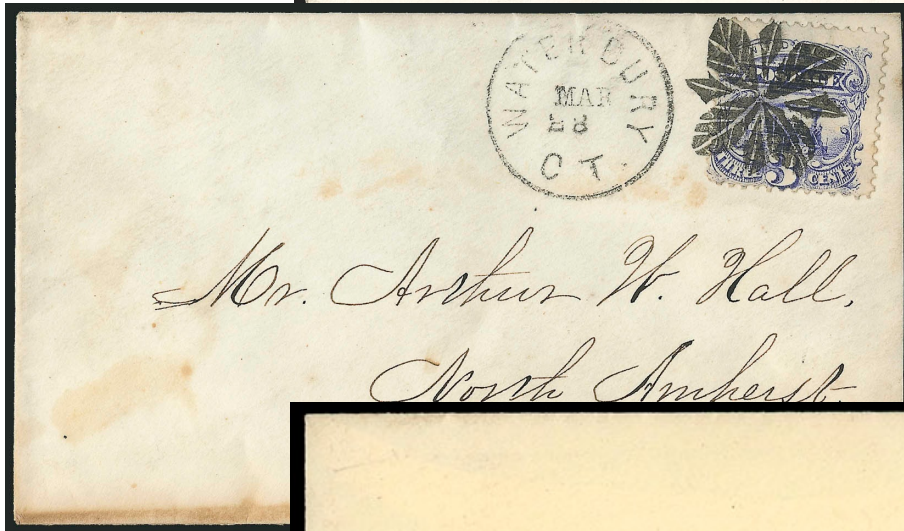 WATERBURY
MAR
28
CT.
POSTAGE
THREE 3 CENTS
Mr. Arthur W. Hall,
North Amherst.